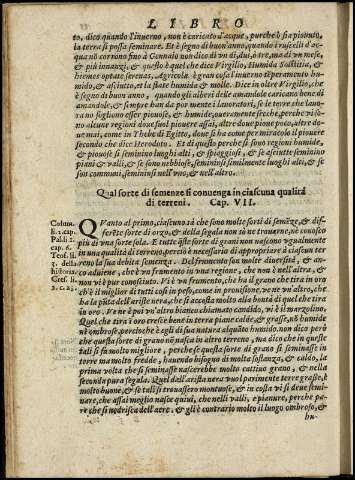 LIBRO
to, dico quando l'inuerno, non è caricato d'acqua, purche è si a piouuto,
la terra si possa seminare. Et è segno di buon'anno, quando i ruscelli d'ac-
qua nõ corrono fino à Gennaio non dico di vn dì, dui, ò tre, ma di vn mese,
& più innanzi, & questo è quel che dice Virgilio, Humida Solstitia, &
hiemes optate serenas, Agricolæ è gran cosa l'inuerno tẽperamento hu-
mido, & asciutto, et la state humida & molle. Dice in oltre Virgilio, che
è segno di buon anno, quando gli alberi delle amandole caricano bene di
amandole, & sempre han da por mente i lauoratori, se le terre che lauo-
rano sogliono esser piouose, & humide, oueramente secche, perche visi
no alcune regioni doue suol piouere assai, altre doue pioue poco, altre do-
ue mai, come in Thebe di Egitto, doue si ha come per miracolo il piouere
secondo che dice Herodoto. Et di questo perche si sono regioni humide,
& piouose si seminino luoghi alti, & spiaggiose, & se asciutte seminino
piani & valli, & se sono nebbiose, seminisi similmente luoghi alti, & se
son communi, seminisi nell'vno, & nell'altro.
Qual sorte di semenze si conuenga in ciascuna qualità
di terreni. Cap. VII.
Colum.
li. 2. cap.
Paldi 2.
cap. 6.
Teof. li.
2. della
historia
Cresc. li.
3. c. 2 &
QVanto al primo, ciascuno sà che sono molte sorti di semẽze, & dif-
ferẽte sorte di orzo, & della segala non sò ne trouarne, ne conosco
più di vna sorte sola. E tutte q̃ste sorte di grani non nascono vgualmente
in vna qualità di terreno, perciò è necessario di appropriare à ciascũ ter-
reno la sua debita semenza. Del frumento son molte diuersità, & an-
co aduiene, che v'è vn frumento in vna regione, che non è nell'altra, &
non vi è pur conosciuto. Vi è vn frumento, c'ha il grano che tira in oro
ch'è il miglior di tutti così in peso, come in prouisione, ve ne vn altro, che
ha la pũta dell'ariste nera, che si accosta molto alla bontà di quel che tira
in oro. Ve ne è poi vn'altro bianco chiamato candido, vi è il marzolino.
Quel che tira à oro cresce bene in terre piane calde, & grasse, nõ humide
nè ombrose, peroche è egli di sua natura alquãto humido. non dico però
che questa sorte di grano nõ nasca in altro terreno, ma dico che in queste
tali si fa molto migliore, perche se questa sorte di grano si seminasse in
terre ma molto fredde, hauendo bisogno di molta sostanza, & caldo, la
prima volta che si seminasse nascerebbe molto cattiuo grano, & nella
seconda pura segala. Quel dell'arista nera vuol parimente terre grasse, è
molto buono, & se tali si trouassero montuose, & in costa vi si deue semi-
nare, che assai meglio nasce quiui, che nelli valli, e pianure, perche pa-
re che si nodrisca dell'aere. & gli è contrario molto il luogo ombroso, &
hu-